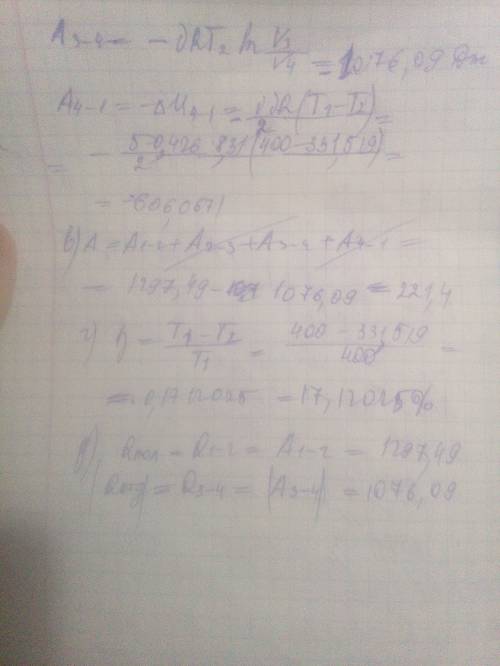 A₃₋₄ = − νRT₂ ln V₃/V₄ = 1076,09 Дж
A₄₋₁ = −ΔU₄₋₁ = i/2 νR(T₁ − T₂) =
= − 5·0,426·8,31(400 − 331,519)/2 =
= −606,0671
в) A = A₁₋₂ + A₂₋₃ + A₃₋₄ + A₄₋₁ =
= 1297,49 − 1076,09 = 221,4
г) η = T₁ − T₂/T₁ = 400 − 331,519/400 =
= 0,1712025 = 17,12025%
д) Qпол = Q₁₋₂ = A₁₋₂ = 1297,49
Qотд = Q₃₋₄ = |A₃₋₄| = 1076,09